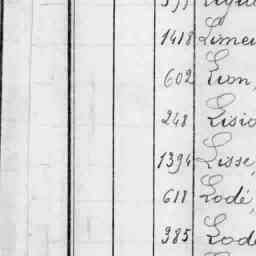 1418 Limei
602 Lion,
248 Lisio
1394 Lisse,
618 Lodé,
385 Lode